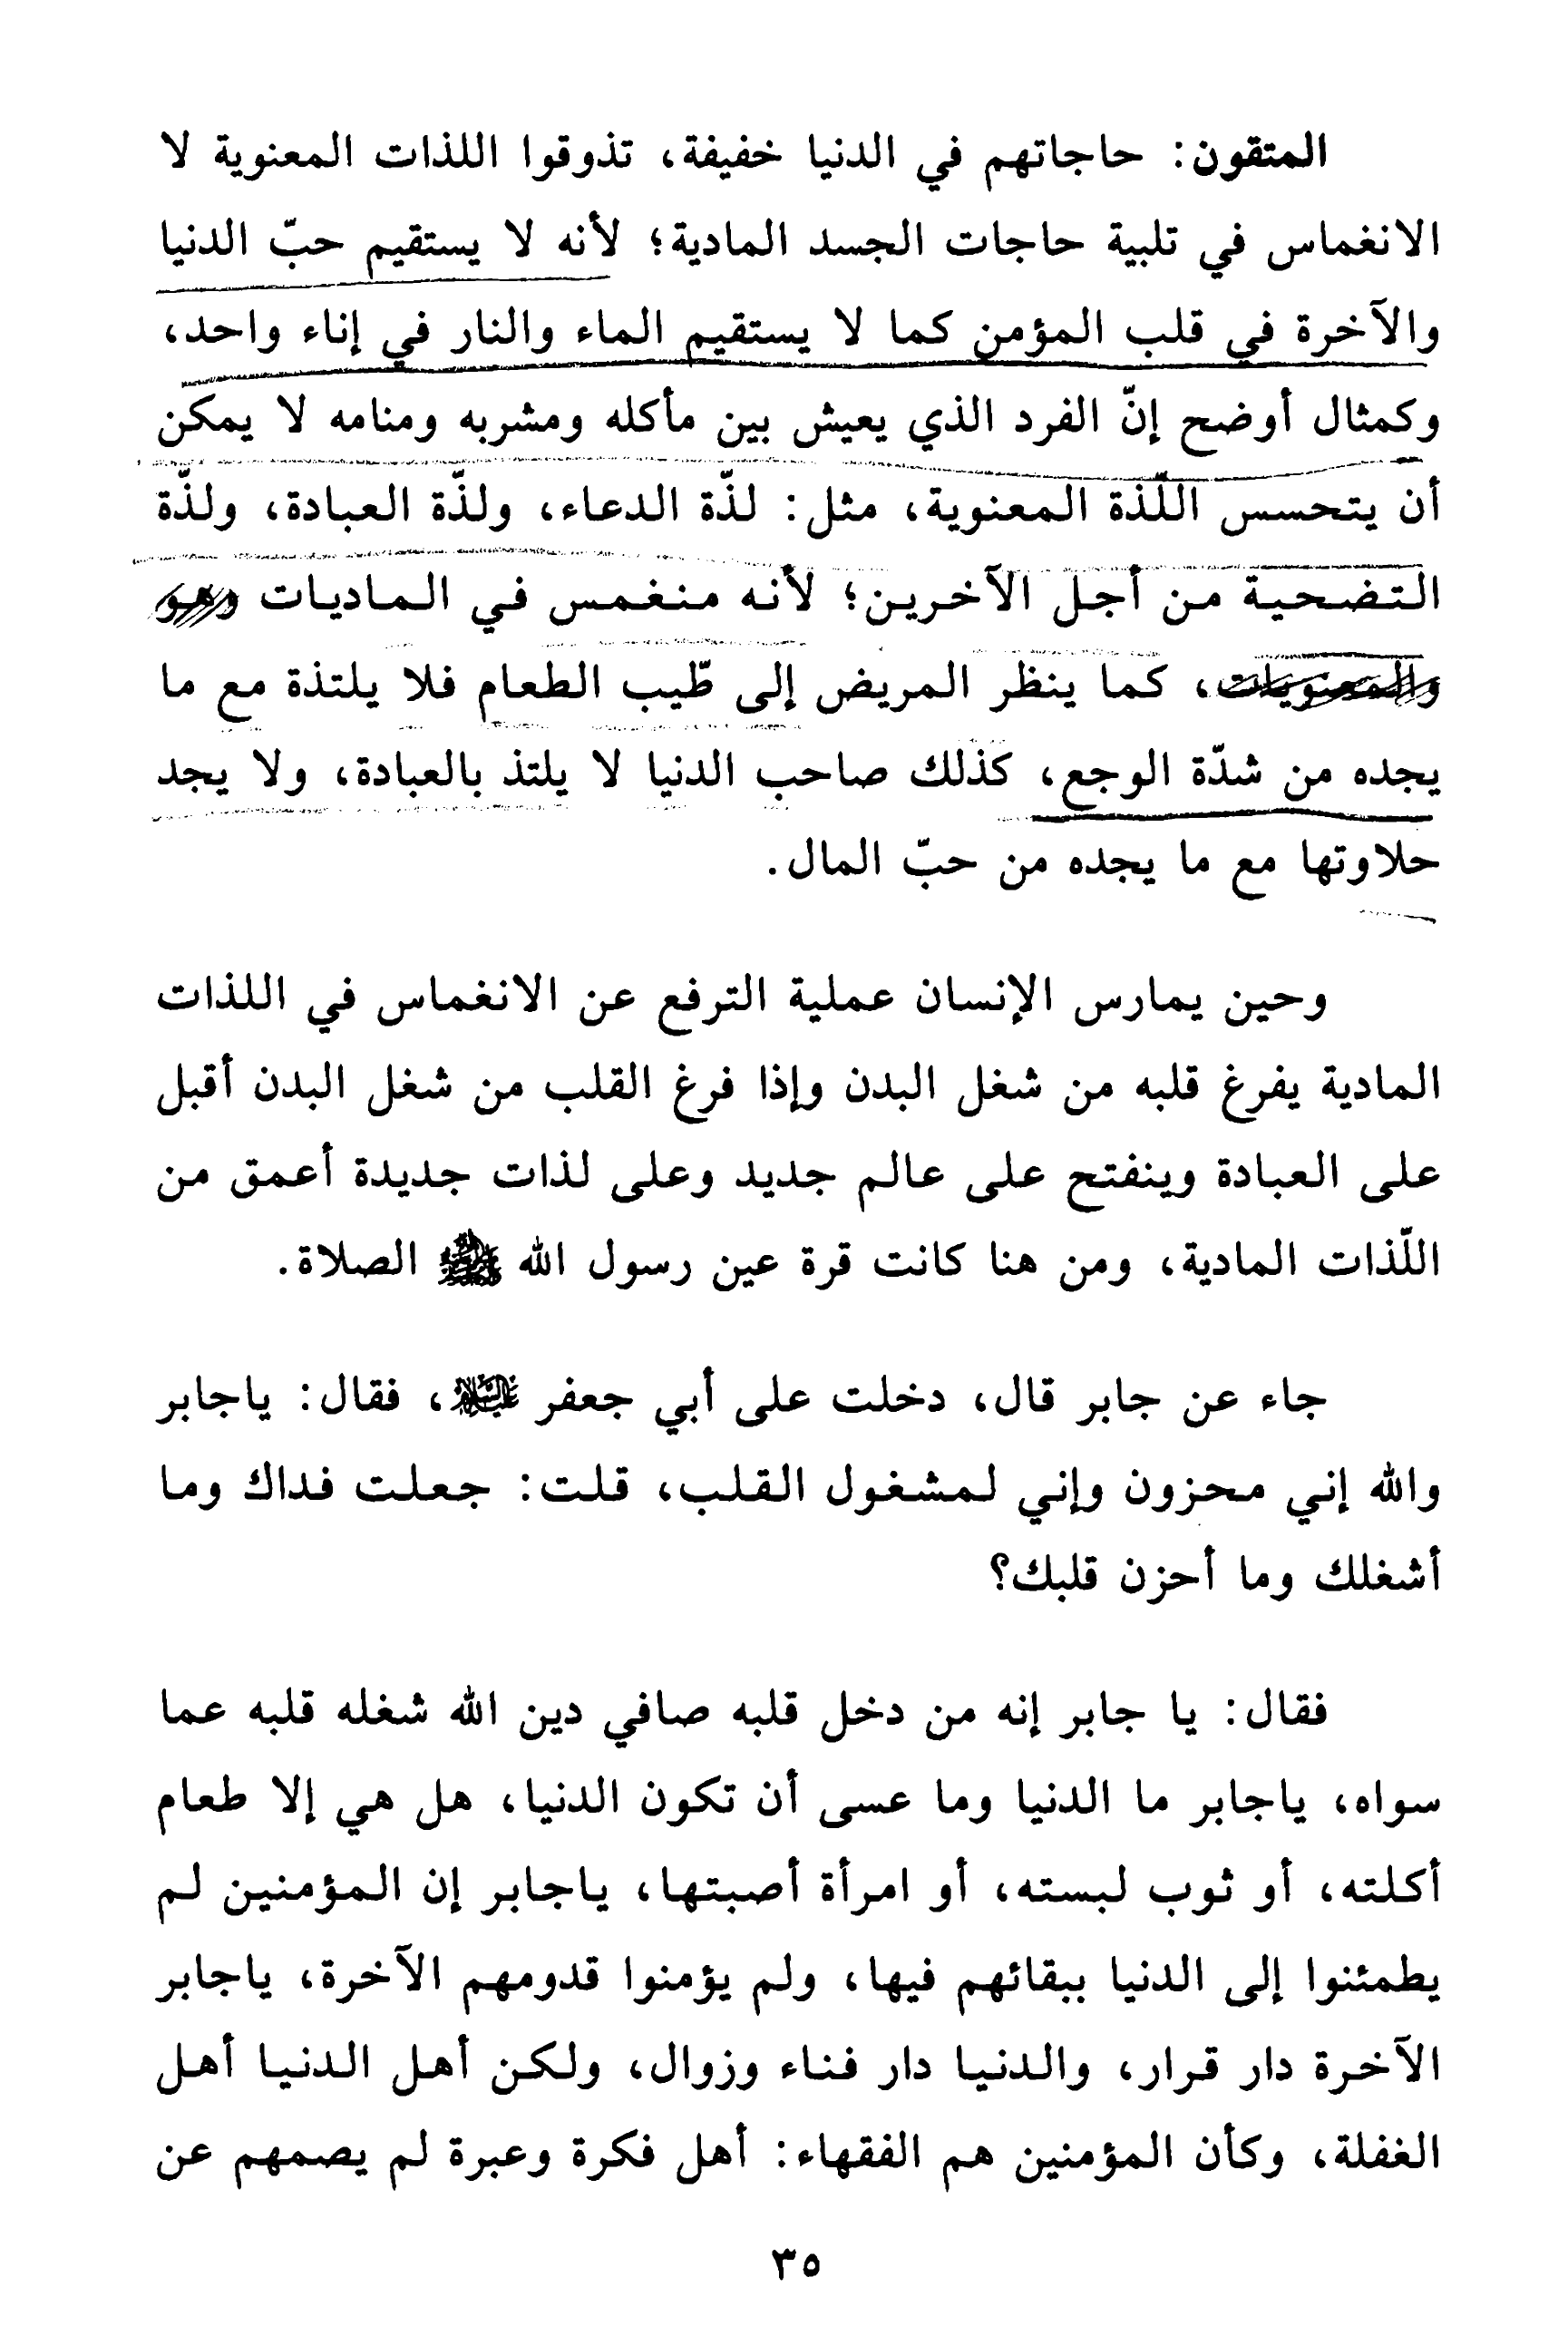 المتقون: حاجاتهم في الدنيا خفيفة، تذوقوا اللذات المعنوية لا
الانغماس في تلبية حاجات الجسد المادية؛ لأنه لا يستقيم حبّ الدنيا
والآخرة في قلب المؤمن كما لا يستقيم الماء والنار في إناء واحد،
وكمثال أوضح إنّ الفرد الذي يعيش بين مأكله ومشربه ومنامه لا يمكن
أن يتحسس اللّذة المعنوية، مثل: لذّة الدعاء، ولذّة العبادة، ولذّة
التضحية من أجل الآخرين؛ لأنه منغمس في الماديات وهو
والمعنويات، كما ينظر المريض إلى طّيب الطعام فلا يلتذة مع ما
يجده من شدّة الوجع، كذلك صاحب الدنيا لا يلتذ بالعبادة، ولا يجد
حلاوتها مع ما يجده من حبّ المال.
وحين يمارس الإنسان عملية الترفع عن الانغماس في اللذات
المادية يفرغ قلبه من شغل البدن وإذا فرغ القلب من شغل البدن أقبل
على العبادة وينفتح على عالم جديد وعلى لذات جديدة أعمق من
اللّذات المادية، ومن هنا كانت قرة عين رسول الله الصلاة.
جاء عن جابر قال، دخلت على أبي جعفر عليه السلام، فقال: ياجابر
والله إني محزون وإني لمشغول القلب، قلت: جعلت فداك وما
أشغلك وما أحزن قلبك؟
فقال: يا جابر إنه من دخل قلبه صافي دين الله شغله قلبه عما
سواه، ياجابر ما الدنيا وما عسى أن تكون الدنيا، هل هي إلا طعام
أكلته، أو ثوب لبسته، أو امرأة أصبتها، ياجابر إن المؤمنين لم
يطمئنوا إلى الدنيا ببقائهم فيها، ولم يؤمنوا قدومهم الآخرة، ياجابر
الآخرة دار قرار، والدنيا دار فناء وزوال، ولكن أهل الدنيا أهل
الغفلة، وكأن المؤمنين هم الفقهاء: أهل فكرة وعبرة لم يصمهم عن
٣٥